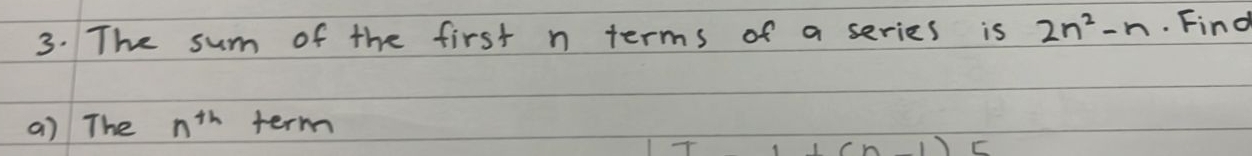 3. The sum of the first n terms of a series is 2n² - n. Find
a) The nᵗʰ term